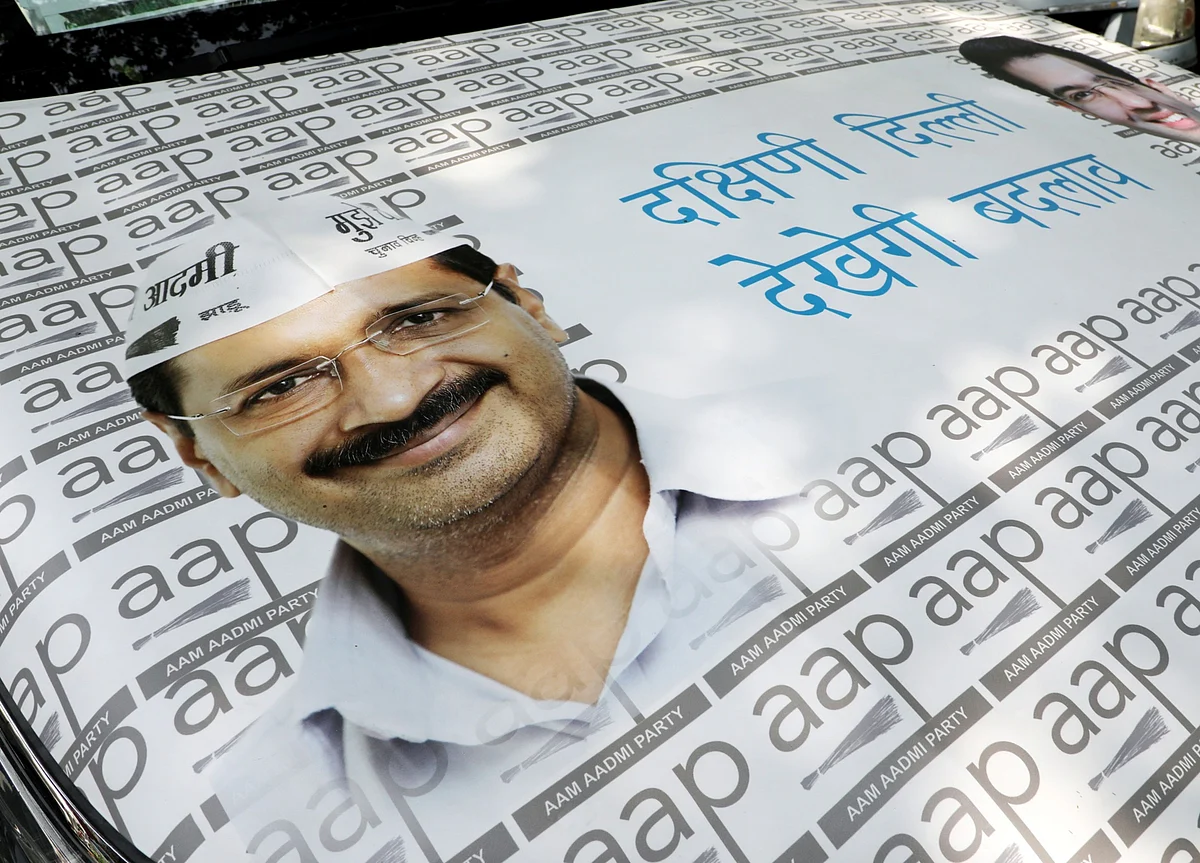 aap
AAM AADMI PARTY
दक्षिणी दिल्ली
देखेगी बदलाव
आदमी
झाडू
चुनाव चिह्न
aap
AAM AADMI PARTY
aap
AAM AADMI PARTY
aap
AAM AADMI PARTY
aap
AAM AADMI PARTY